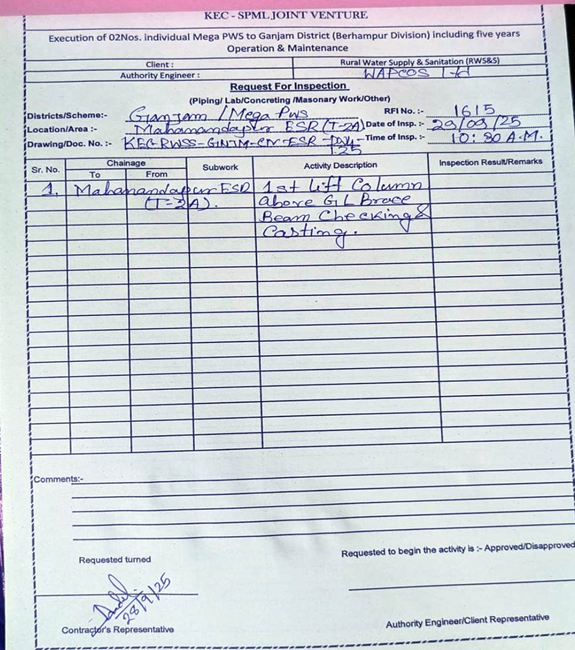 KEC - SPML JOINT VENTURE
Execution of 02Nos. individual Mega PWS to Ganjam District (Berhampur Division) including five years
Operation & Maintenance
Client : Rural Water Supply & Sanitation (RWS&S)
Authority Engineer : WAPCOS Ltd
Request For Inspection
(Piping/ Lab/Concreting /Masonary Work/Other)
Districts/Scheme:- Ganjam / Mega PWS RFI No. :- 1615
Location/Area :- Mahanandapur ESR (T-2A) Date of Insp. :- 29/09/25
Drawing/Doc. No. :- KEC-RWSS-GNJM-CIV-ESR- Time of Insp.:- 10:30 A.M.
125
Sr. No. Chainage Subwork Activity Description Inspection Result/Remarks
To From
1. Mahanandapur ESR 1st Lift Column
(T-2A). above GL Brace
Beam Checking &
Casting.
Comments:-
Requested turned Requested to begin the activity is :- Approved/Disapproved
28/9/25
Contractor's Representative Authority Engineer/Client Representative